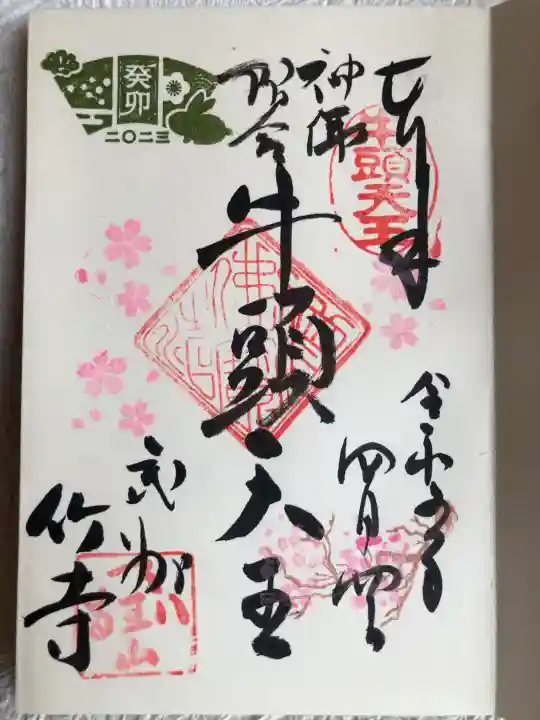 奉拝
牛頭天王
令和五年
四月四日
神仏習合
牛頭天王
武州
竹寺
癸卯
二〇二三